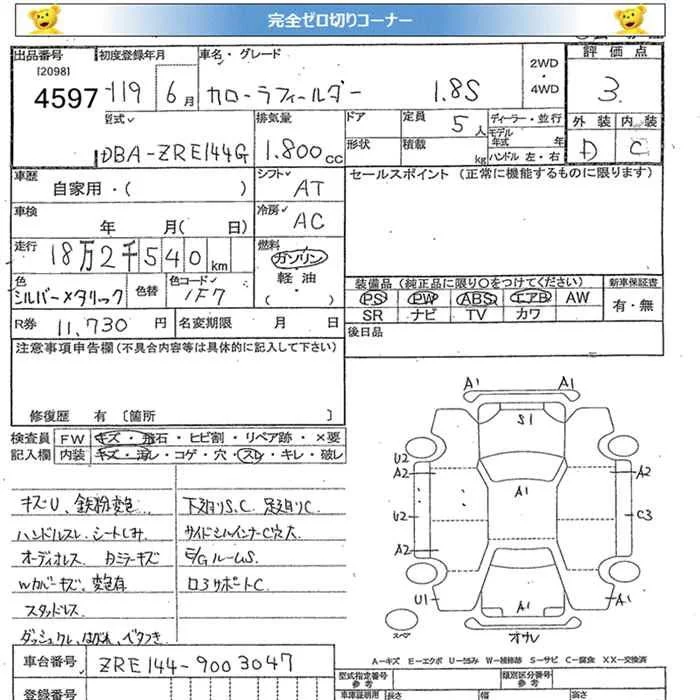 完全ゼロ切りコーナー
出品番号 初度登録年月 車名・グレード 2WD ・ 4WD 評価点
[2098]
4597 H19 6月 カローラフィールダー 1.8S 3
型式 排気量 ドア 定員 5人 ディーラー・並行 外装 内装
DBA-ZRE144G 1.800cc 形状 積載 kg モデル年式 年 ハンドル 左・右 D C
車歴 自家用・( ) シフト AT セールスポイント (正常に機能するものに限ります)
車検 年 月( 日) 冷房 AC
走行 18万2千540km 燃料 ガソリン 軽油 ・( )
色 シルバーメタリック 色替 色コード 1F7
装備品 (純正品に限り○をつけてください) 新車保証書
PS PW ABS エアB AW 有・無
SR ナビ TV カワ
R券 11,730円 名変期限 月 日 後日品
注意事項申告欄(不具合内容等は具体的に記入して下さい)
修復歴 有 [箇所 ]
検査員 FW キズ・飛石・ヒビ割・リペア跡・×要
記入欄 内装 キズ・汚レ・コゲ・穴・スレ・キレ・破レ
キズU、鉄粉変色
ハンドルスレ、シートしみ
オーディオレス、カミラーキズ
Wカバーキズ、変色有
スタッドレス
ダッシュクレ、はがれ、ベタつき
下廻りS、C 足廻りC
サイドシルインナーC穴大
E/GルームS
ロアサポートC
A1 A1
S1
U2
A2 A1 A2
U2 C3
A2
U1 A1 A1
スペア オナレ
A-キズ E-エクボ U-凹み W-補修跡 S-サビ C-腐食 XX-交換済
車台番号 ZRE144-9003047
登録番号
型式指定番号 参考 類別区分番号 参考
車庫証明用 参考 長さ 幅 高さ